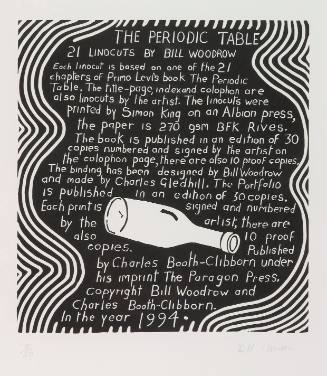 THE PERIODIC TABLE
21 LINOCUTS BY BILL WOODROW
Each linocut is based on one of the 21
chapters of Primo Levi's book The Periodic
Table. The title-page, index and colophon are
also linocuts by the artist. The linocuts were
printed by Simon King on an Albion press,
the paper is 270 gsm BFK Rives.
The book is published in an edition of 30
copies numbered and signed by the artist on
the colophon page, there are also 10 proof copies.
The binding has been designed by Bill Woodrow
and made by Charles Gledhill. The Portfolio
is published in an edition of 30 copies.
Each print is signed and numbered
by the artist, there are
also 10 proof
copies. Published
by Charles Booth-Clibborn under
his imprint The Paragon Press.
Copyright Bill Woodrow and
Charles Booth-Clibborn.
In the year 1994.